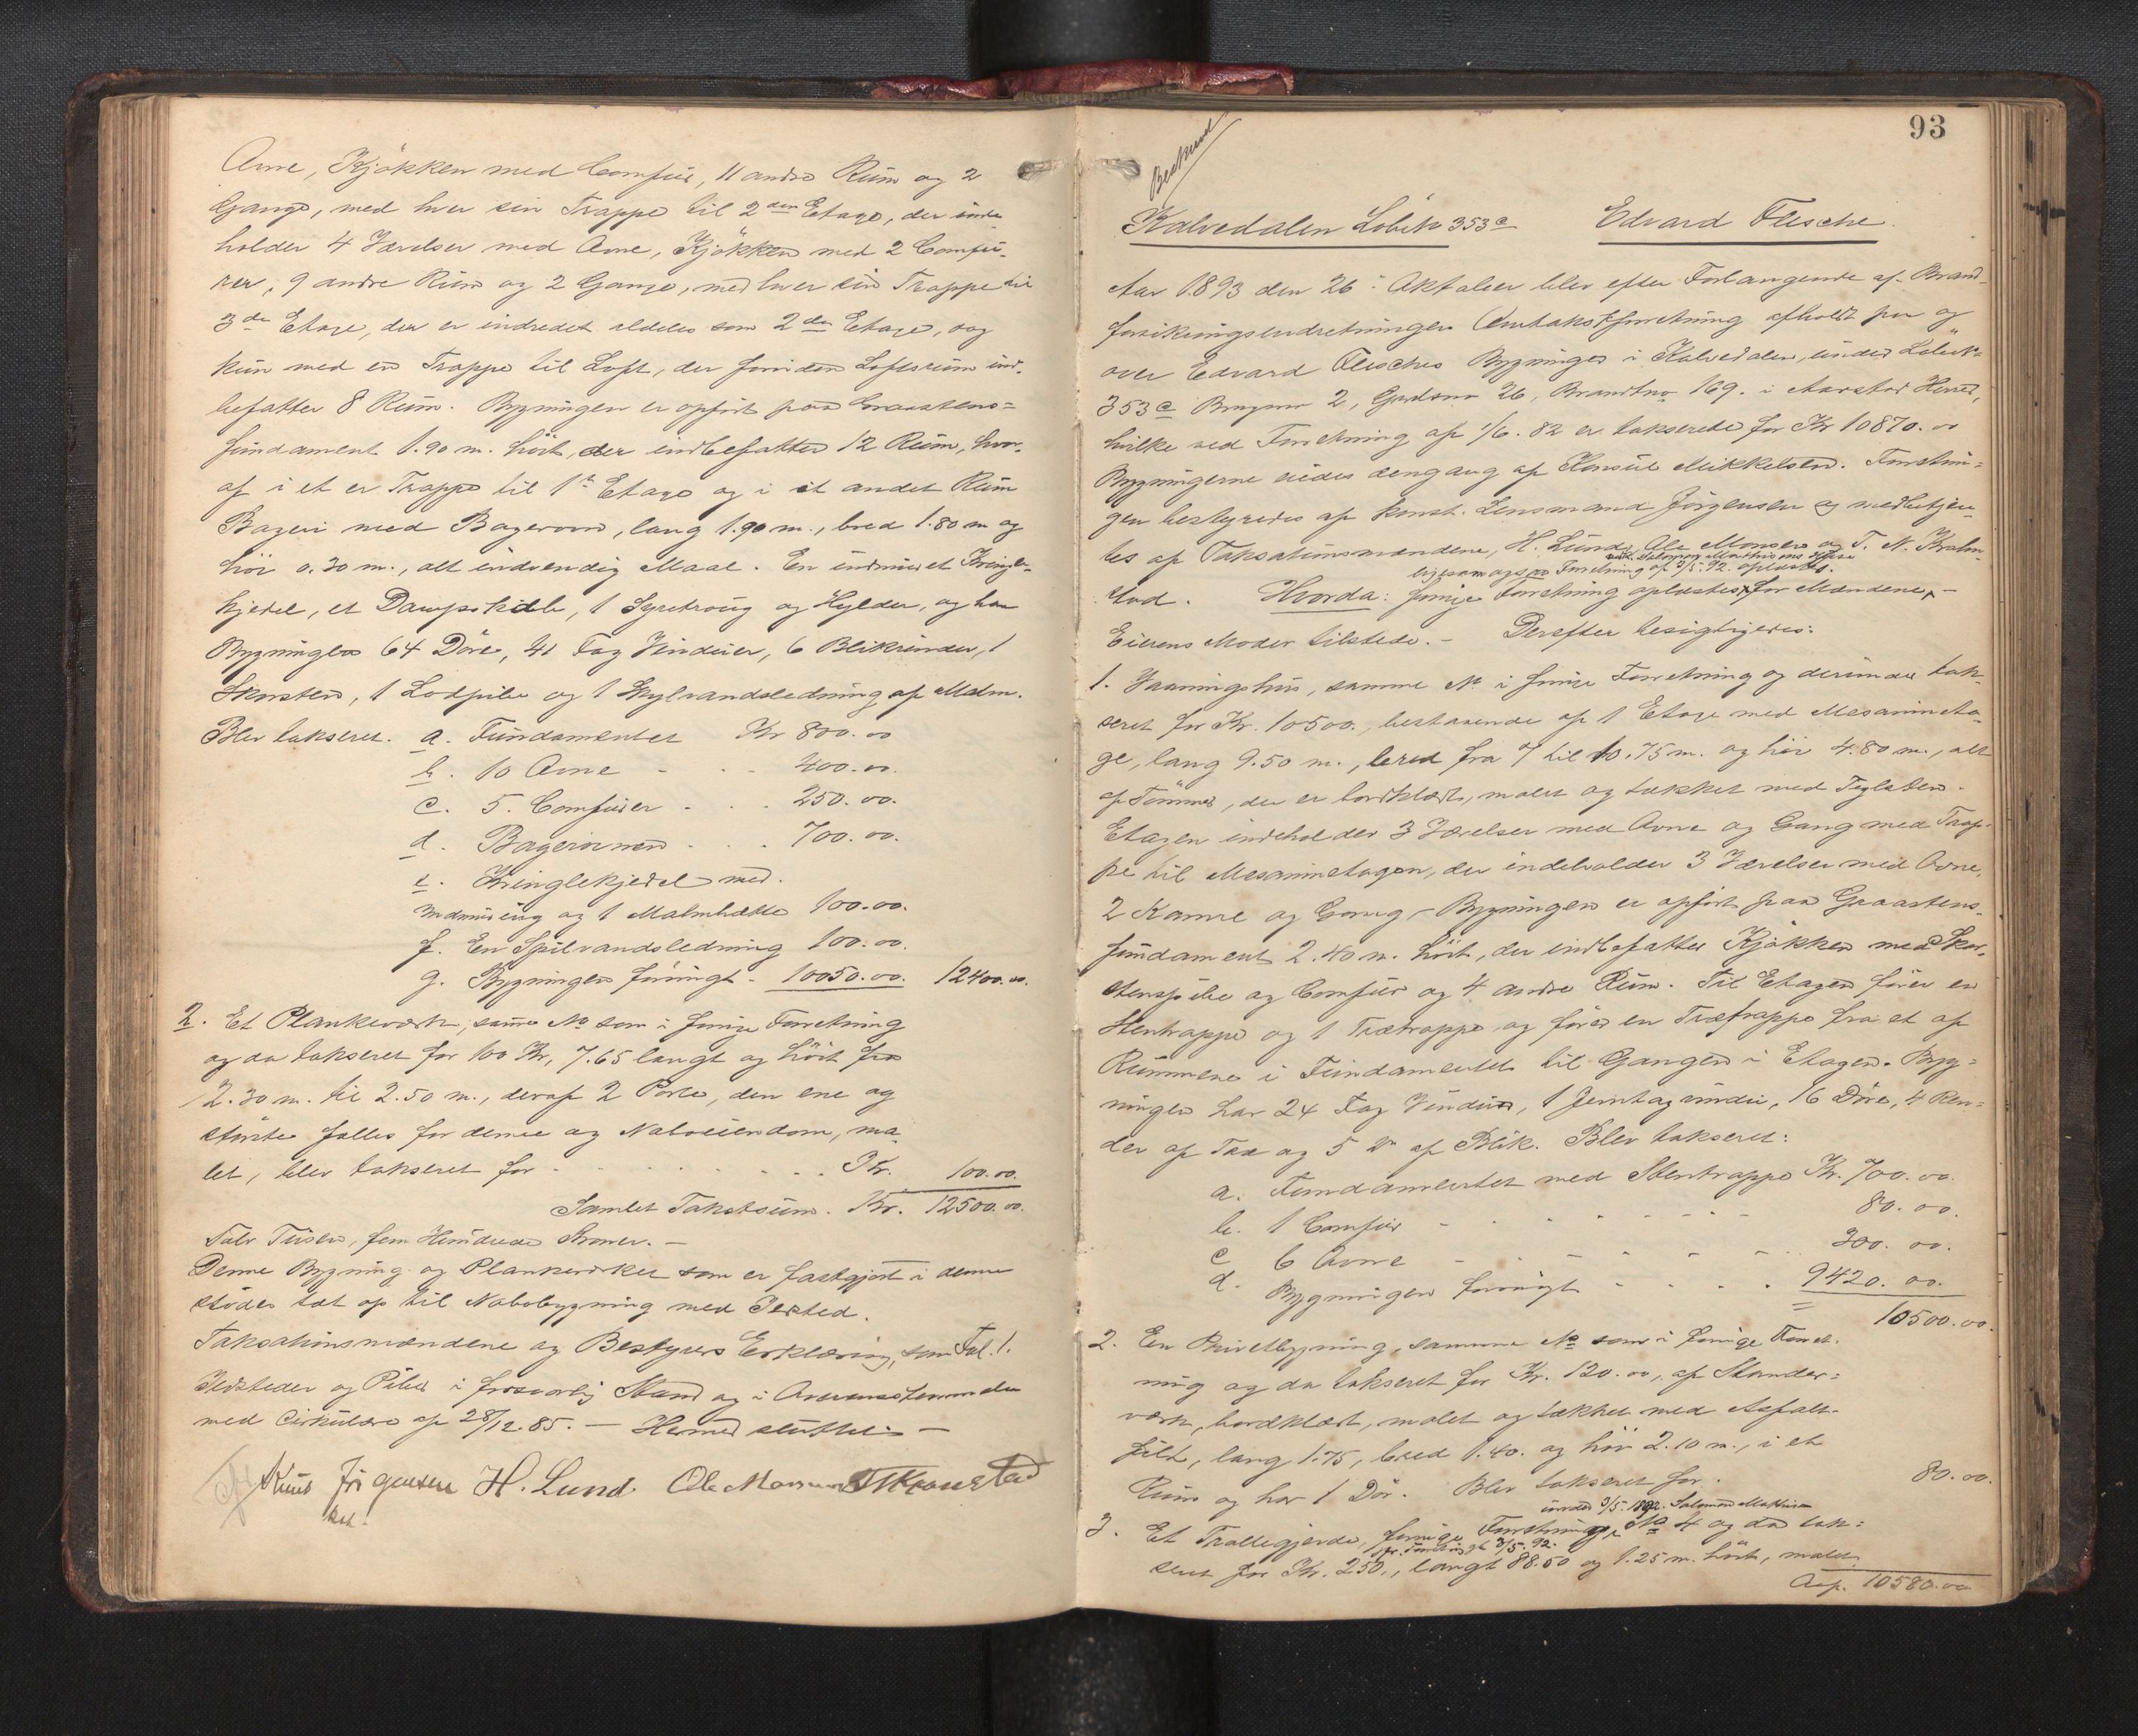 Ovne, Kjökken med Comfür, 11 andre Rüm og 2
Gange, med hver sin Trappe til 2den Etage, der inde
holder 4 Værelser med Ovne, Kjökken med 2 Comfü-
rer, 9 andre Rüm og 2 Gange, med hver sin Trappe til
3de Etage, der er indredet aldeles som 2den Etage, og
kün med en Trappe til Loft, der foruden Loftsrüm ind-
befatter 8 Rüm. Bygningen er opfört paa Graastens-
fündament 1.90 m. höit, der indbefatter 12 Rüm, hvor-
af i et er Trappe til 1ste Etage og i et andet Rüm
Bageri med Bagerovn, lang 1.90 m., bred 1.80 m og
höi 0.30 m., alt indvendig Maal. En indmüret Kringle-
kjedel, et Dampskab, 1 Syretroug og Hylder, og har
Bygningen 64 Döre, 41 Fag Vindüer, 6 Blikrender, 1
Skorsten, 1 Lodpibe og 1 Skylvandsledning af Malm.
Blev takseret. a. Fündamentet Kr 800.00
b. 10 Ovne - - 400.00.
c. 5. Comfürer - - 250.00.
d. Bagerovnen - - 700.00.
e. Kringlekjedel med
Indmüring og 1 Malmhætte 100.00.
f. En Spilvandsledning 100.00.
g. Bygningen forövrigt - 10050.00. 12400.00.
2. Et Plankeværk, samme No som i forrige Forretning
og da takseret for 100 Kr, 7.65 langt og höit fra
2.30 m. til 2.50 m., deraf 2 Porte, den ene og
störste fælles for denne og Naboeiendom, ma-
let, blev takseret for - - - Kr. 100.00.
Samlet Takstsüm. Kr. 12500.00.
Tolv Tüsen, fem Hündrede Kroner. -
Denne Bygning og Plankeværket som er fastgjort i denne
stöder tæt op til Nabobygning med Ildsted.
Taksationsmændene og Bestyrers Erklæring, som Fol. 1.
Ildsteder og Piber i forsvarlig Stand og i Overensstemmelse
med Cirkülære af 28/12.85. - Hermed slüttet. -
Jörgensen H. Lund. Ole Monsen T N Kronstad
kst.
93
Kalvedalen Löbno 353c Edvard Flesche.
Aar 1893 den 26. Oktober blev efter Forlangende af Brand-
forsikringsindretningen Omtakstforretning afholdt paa og
over Edvard Flesches Bygninger i Kalvedalen, ünder Löbeno
353c Brugsno 2, Gaardsno 26, Brandtno 169. i Aarstad Herred,
hvilke ved Forretning af 1/6. 82 er takserede for Kr 10870.00
Bygningerne eiedes dengang af Konsül Mikkelsen. Forretnin-
gen bestyredes af konst. Lensmand Jörgensen og medbetjen-
tes af Taksationsmændene, H. Lund, Ole Monsen og T. N. Kron-
ligesom ogsaa Forretning af 3/5. 92. oplæstes.
stad. Hvorda: forrige Forretning oplæstes for Mændene, -
Eierens Moder tilstede. - Derefter besigtigedes:
1. Vaaningshüs, samme No i forrige Forretning og deründer tak-
seret for Kr. 10500., bestaaende af 1 Etage med Mesanineta-
ge, lang 9.50 m., bred fra 7 til 10.75 m. og höi 4.80 m., alt
af Tömmer, der er bordklædt, malet og tækket med Teglsten.
Etagen indeholder 3 Værelser med Ovne og Gang med Trap-
pe til Mesaninetagen, der indeholder 3 Værelser med Ovne,
2 Kamre og Gang - Bygningen er opfört paa Graastens-
fündament 2.40 m. höit, der indbefatter Kjökken med Skor-
stenspibe og Comfür og 4 andre Rüm. Til Etagen förer en
Stentrappe og 1 Trætrappe og förer en Trætrappe fra et af
Rümmene i Fündamentet til Gangen i Etagen. Byg-
ningen har 24 Fag Vindüer, 1 Jerntagvindü, 16 Döre, 4 Ren-
der af Træ og 5 do af Blik. Blev takseret:
a. Fündamentet med Stentrappe Kr. 700.00.
b. 1 Comfür - - - 80.00.
c 6 Ovne - - - 300.00.
d. Bygningen forövrigt - - - 9420.00.
10500.00.
2. En Privetbygning, samme No som i forrige Forret-
ning og da takseret for Kr. 120.00, af Stander-
værk, bordklædt, malet og tækket med Asfalt-
filt, lang 1.75, bred 1.40. og höi 2.10 m., i et
Rüm og har 1 Dör. Blev takseret for. 80.00.
ünder 3/5. 1892. Salomon Mathisen
3. Et Trallegjerde, forrige Forretnings No 4 og da tak-
Forretning af 3/5. 92.
seret for Kr. 250., langt 88.50 og 1.25 m. höit, malet.
10580.00